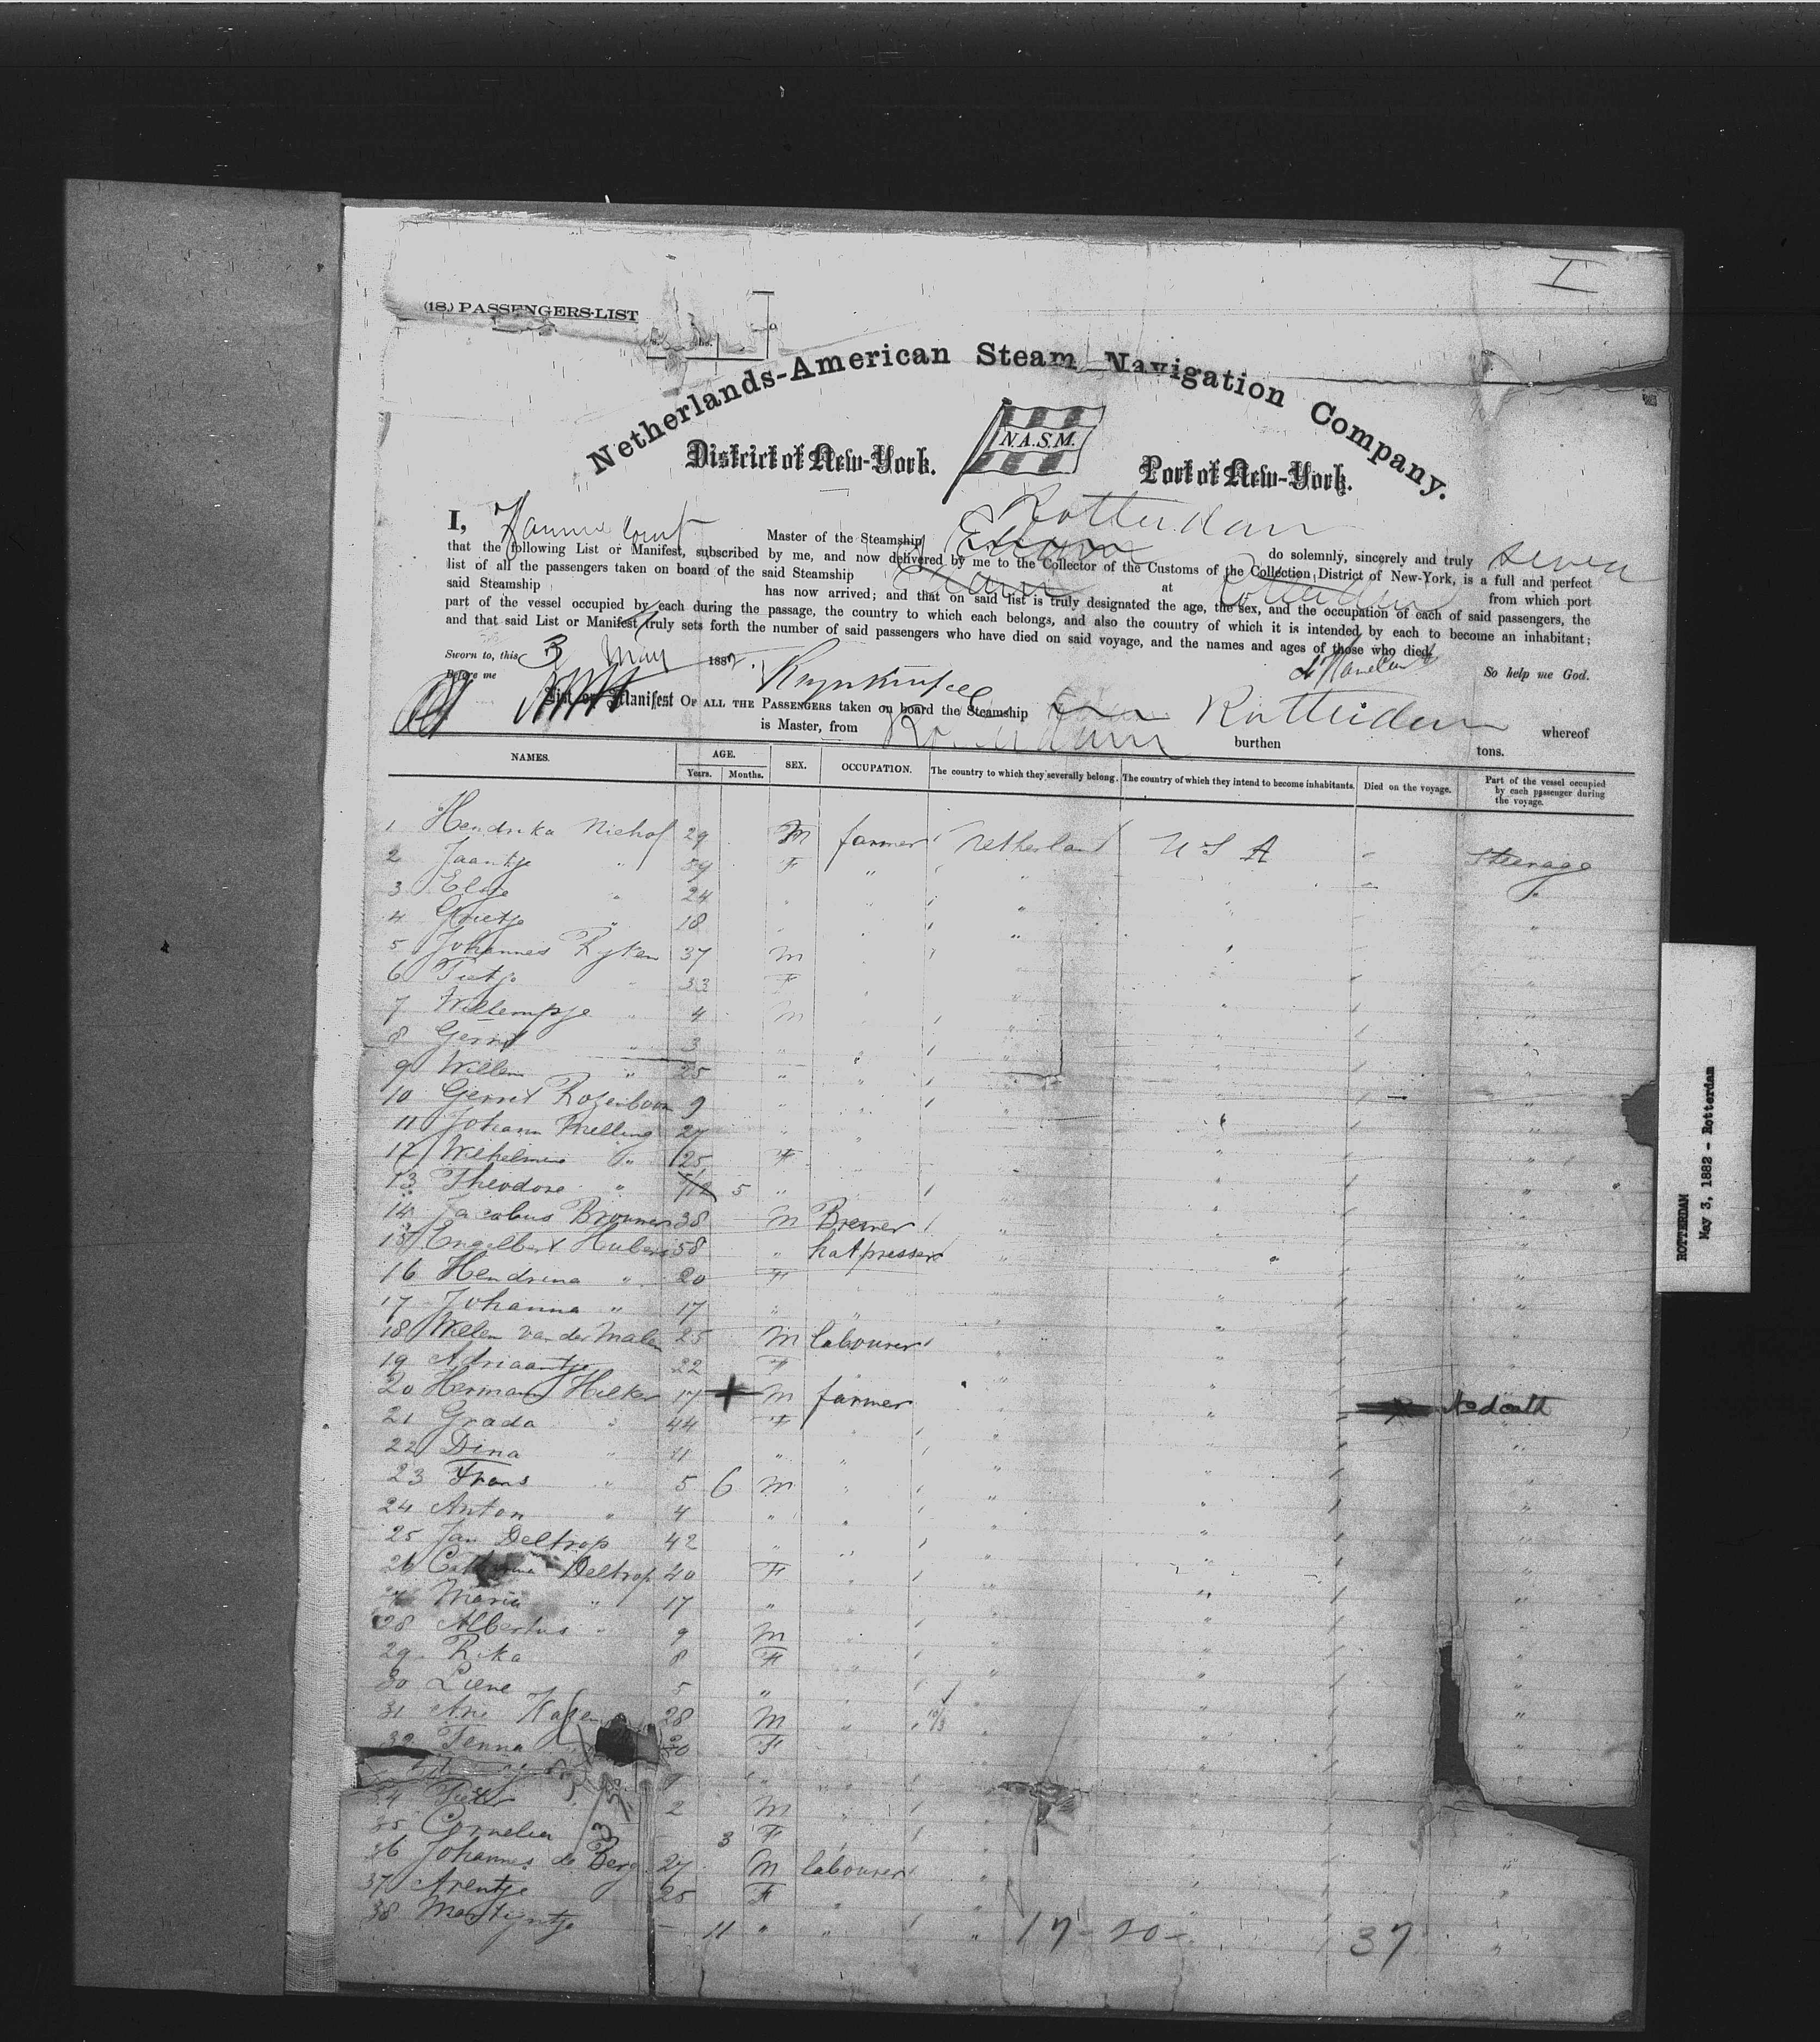 I
(18.) PASSENGERS-LIST
Netherlands-American Steam Navigation Company.
District of New-York. N.A.S.M. Port of New-York.
Rotterdam
I, Master of the Steamship Edam do solemnly, sincerely and truly swear
that the following List or Manifest, subscribed by me, and now delivered by me to the Collector of the Customs of the Collection District of New-York, is a full and perfect
list of all the passengers taken on board of the said Steamship at Rotterdam from which port
said Steamship has now arrived; and that on said list is truly designated the age, the sex, and the occupation of each of said passengers, the
part of the vessel occupied by each during the passage, the country to which each belongs, and also the country of which it is intended by each to become an inhabitant;
and that said List or Manifest truly sets forth the number of said passengers who have died on said voyage, and the names and ages of those who died.
Sworn to, this 3 May 1882. So help me God.
Before me
List or Manifest OF ALL THE PASSENGERS taken on board the Steamship Rotterdam whereof
is Master, from Rotterdam burthen tons.
NAMES. AGE. Years. Months. SEX. OCCUPATION. The country to which they severally belong. The country of which they intend to become inhabitants. Died on the voyage. Part of the vessel occupied by each passenger during the voyage.
1 Hendrika Niehof 29 M farmer Netherland U S A Steerage
2 Jaantje " 59 F "
3 Elsje " 24
4 Grietje " 18
5 Johannes Ryken 37 M
6 Tietje " 33 F
7 Willempje " 4 M
8 Gerrit " 3 "
9 Willem " 25 "
10 Gerrit Rozenboom 9 "
11 Johann 27 "
12 Wilhelmine " 25 F
13 Theodore " 5 "
14 Jacobus Brouwer 38 M Brewer
15 Engelbert Hubers 58 " hatpresser
16 Hendrina " 20 F
17 Johanna " 17 "
18 Willem van der Malen 25 M labourer
19 Adriaantje 22 F
20 Hermann Hilker 17 + M farmer No death
21 Grada " 44 F
22 Dina " 11 "
23 Frans " 5 6 M
24 Anton " 4 "
25 Jan Deltrop 42 "
26 Deltrop 40 F
Maria " 17 "
28 Albertus " 9 M
29 Rika 8 F
30 Liene 5 "
31 Arie 28 M
32 Tenna " F
34 Pieter 2 M
35 Cornelia 3 F
36 Johannes de Berg 27 M labourer
37 Arentje 25 F
38 Martijntje — 11 " "
17 - 20 - 37
ROTTERDAM
May 3, 1882 - Rotterdam